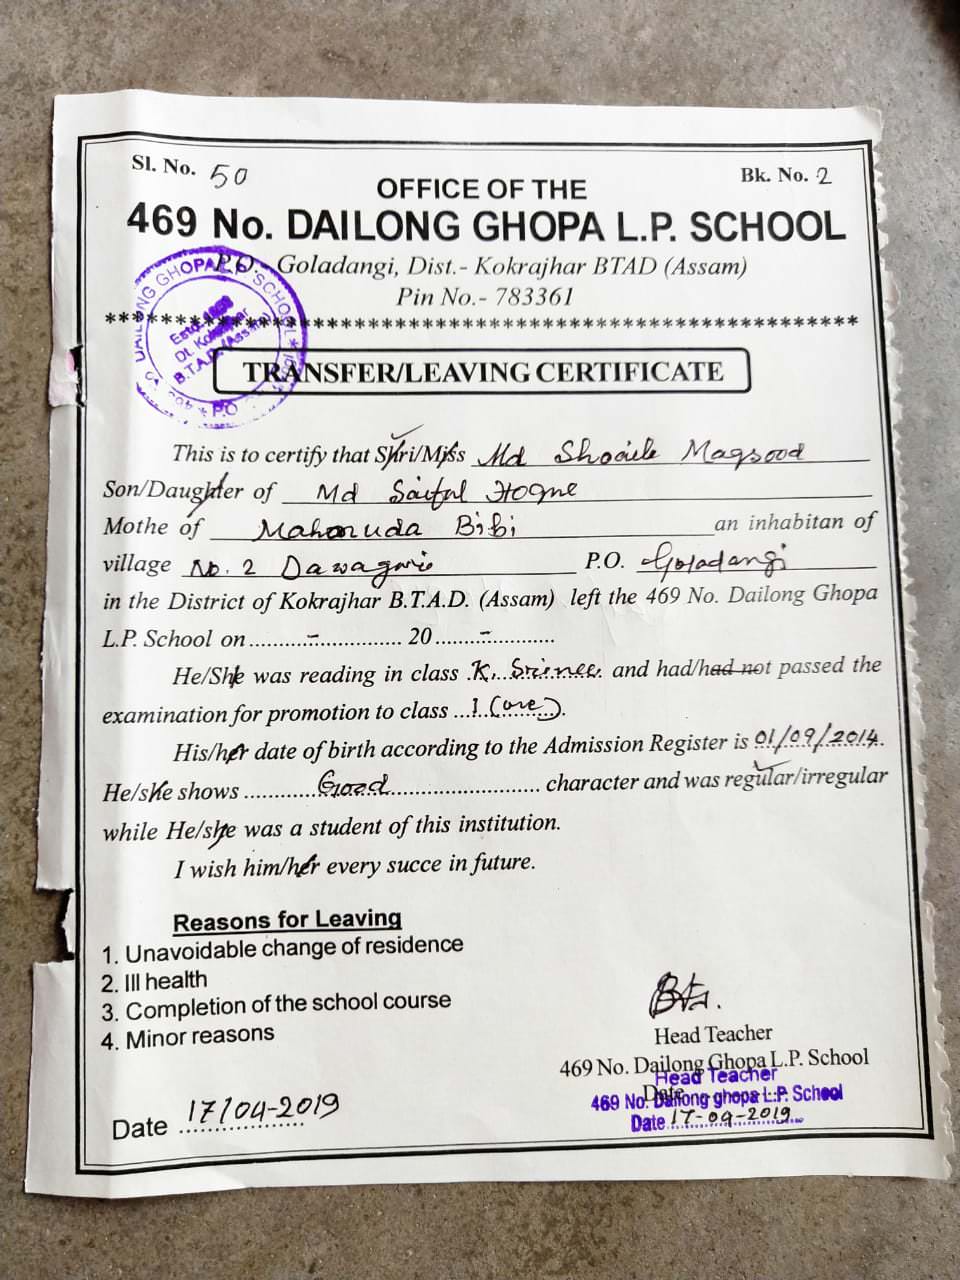 Sl. No. 50
Bk. No. 2
OFFICE OF THE
469 No. DAILONG GHOPA L.P. SCHOOL
P.O. Goladangi, Dist.- Kokrajhar BTAD (Assam)
Pin No.- 783361
TRANSFER/LEAVING CERTIFICATE
This is to certify that Shri/Miss Md Shoaib Maqsood
Son/Daughter of Md Saiful Hoque
Mothe of Bibi an inhabitan of
village No. 2 Dawaguri P.O. Goladangi
in the District of Kokrajhar B.T.A.D. (Assam) left the 469 No. Dailong Ghopa
L.P. School on ..........-.......... 20.......-..........
He/She was reading in class K. and had/had not passed the
examination for promotion to class ...1 (one).
His/her date of birth according to the Admission Register is 01/09/2014.
He/she shows ..........Good.................... character and was regular/irregular
while He/she was a student of this institution.
I wish him/her every succe in future.
Reasons for Leaving
1. Unavoidable change of residence
2. Ill health
3. Completion of the school course
4. Minor reasons
Head Teacher
469 No. Dailong Ghopa L.P. School
Date
Head Teacher
469 No. Dailong ghopa L.P. School
Date 17-04-2019
Date 17/04-2019
DAILONG GHOPA L.P. SCHOOL
Estd.
Dt. Kokrajhar
B.T.A.D. (Assam)
P.O